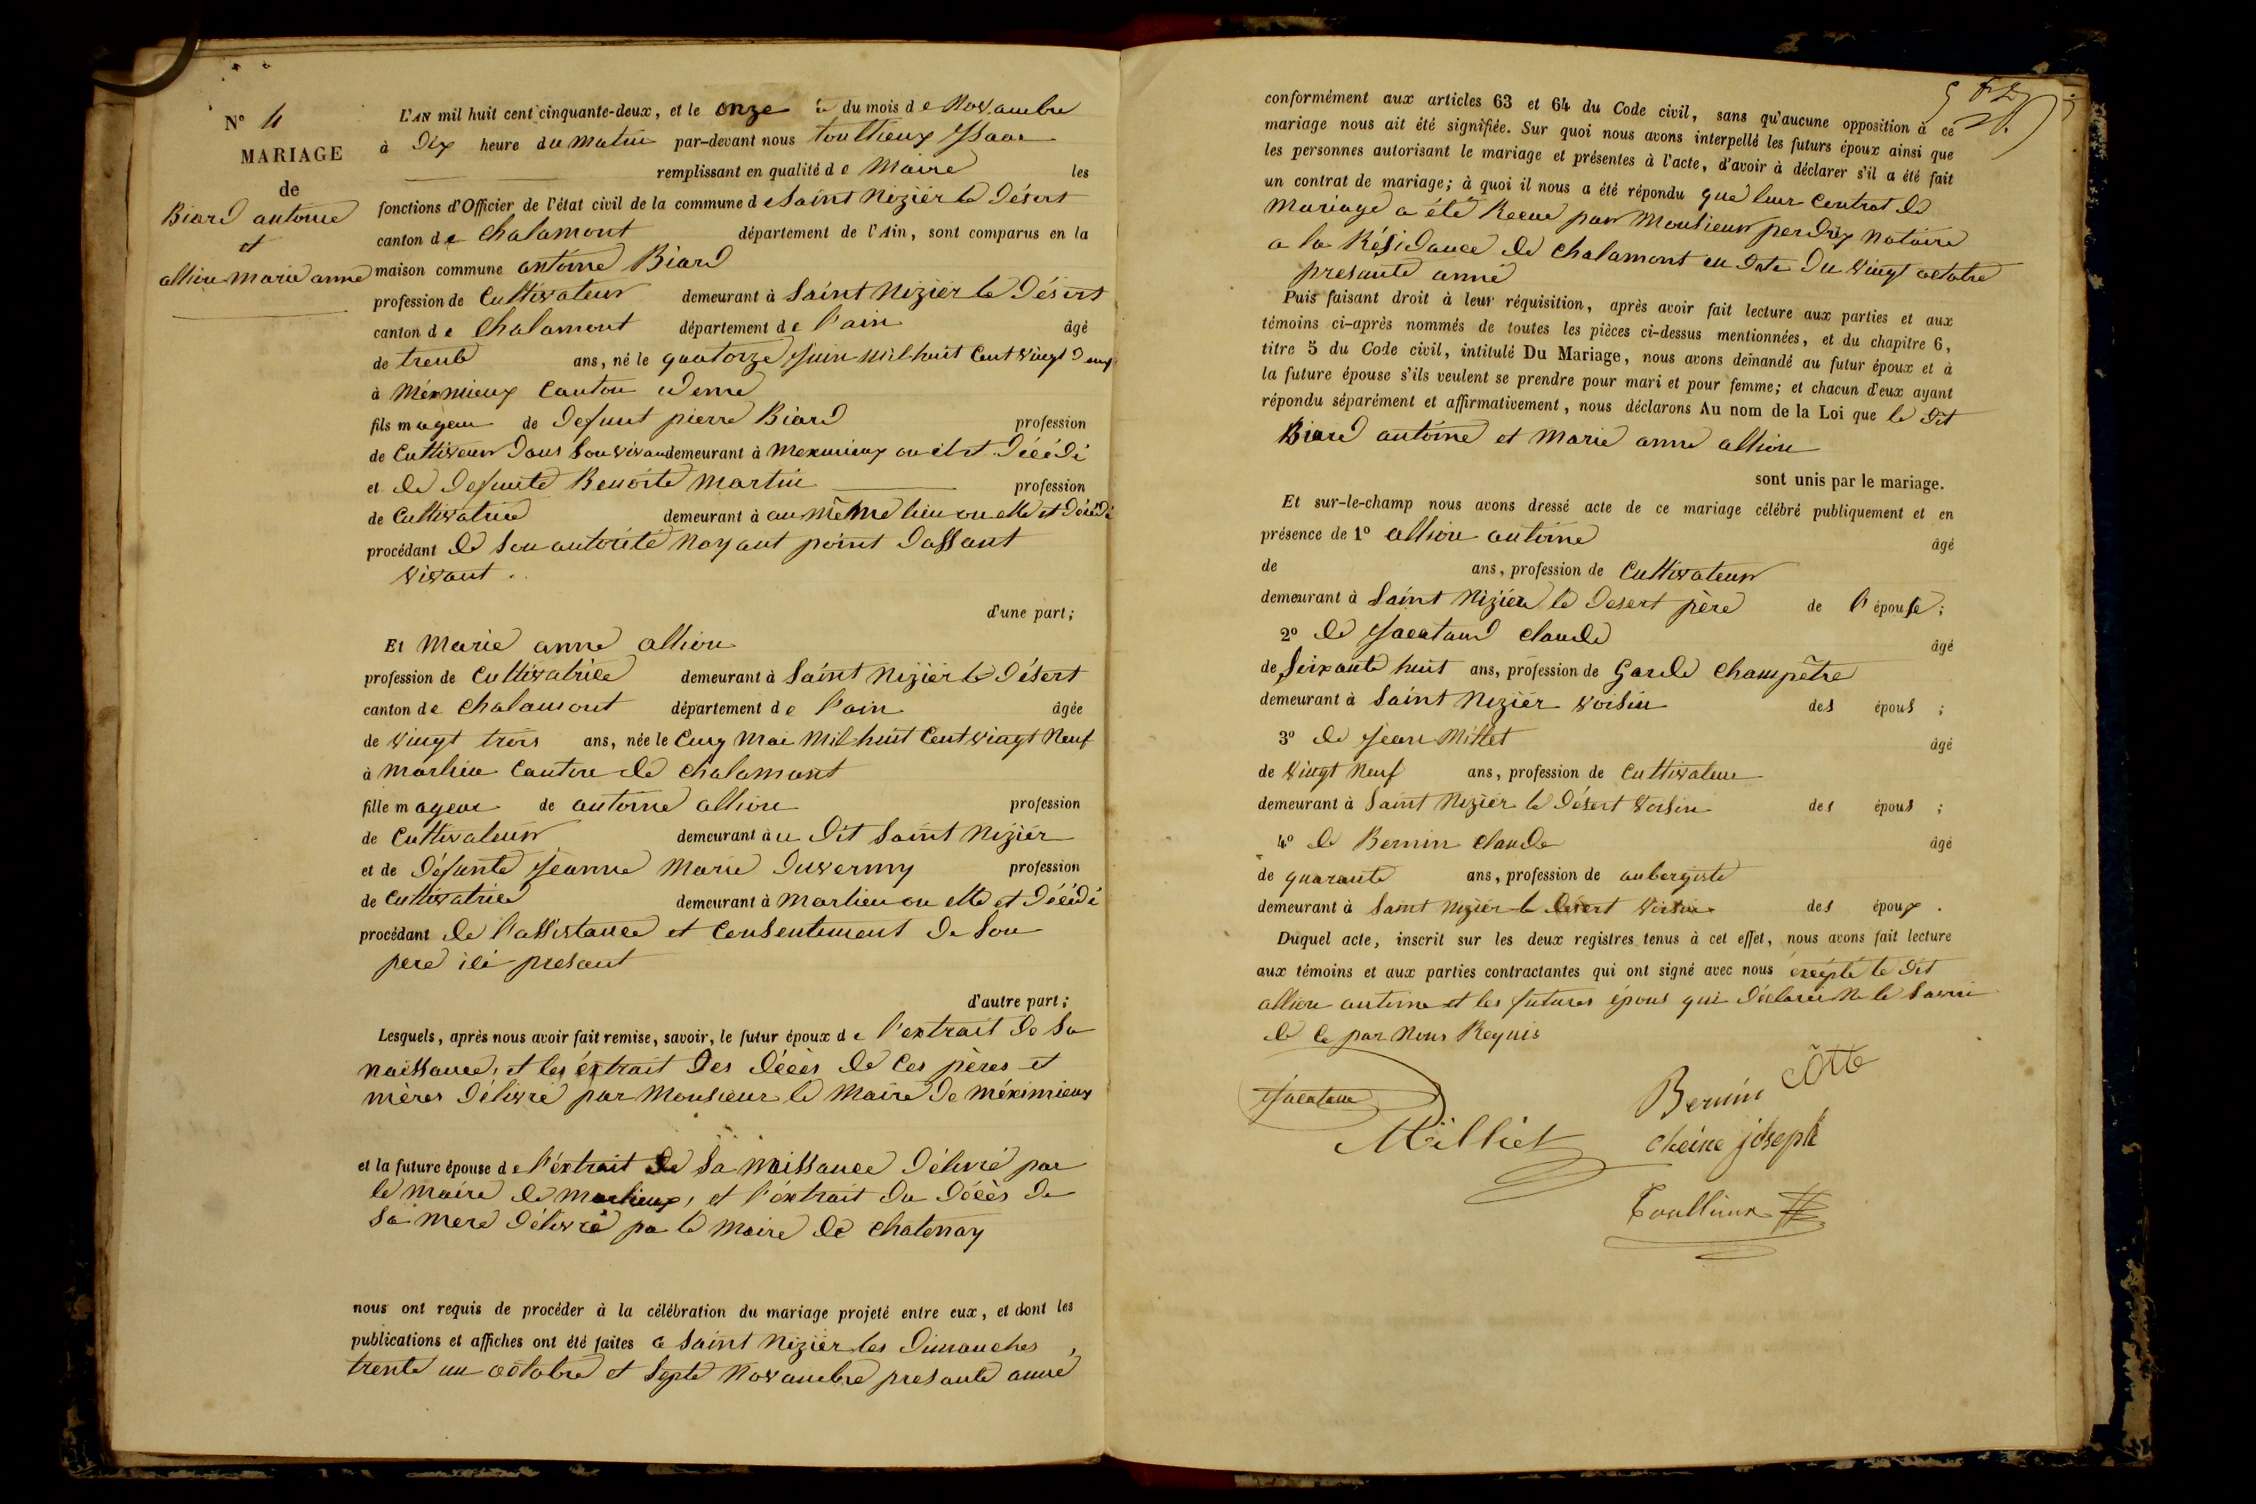 N° 4
MARIAGE
de
Biard antoine
et
allion marie anne
L'AN mil huit cent cinquante-deux, et le onze du mois de Novambre
à Dix heure du matin par-devant nous toullieux Ysaac
remplissant en qualité de Maire les
fonctions d'Officier de l'état civil de la commune de Saint Nizier le Désert
canton de Chalamont département de l'Ain, sont comparus en la
maison commune antoine Biard
profession de Cultivateur demeurant à Saint Nizier le Désert
canton de Chalamont département de l'ain âgé
de trente ans, né le quatorze Juin Mil huit Cent vingt Deux
à Méxmieux Canton idem
fils mageur de Defunt pierre Biard profession
de Cultiveur Dans Son vivan demeurant à Mexmieux ou il et Décédé
et de Defunte Benoite Martin profession
de Cultivatrice demeurant à au même lieu ou elle et Décédé
procédant de Son autorité Nayant point Dassant
vivant.
d'une part;
Et Marie anne allion
profession de Cultivatrice demeurant à Saint Nizier le Désert
canton de Chalamont département de l'ain âgée
de vingt trois ans, née le Cinq Mai Mil huit Cent vingt Neuf
à Marlieu Canton de Chalamont
fille mageur de antoine allion profession
de Cultivateur demeurant à u Dit Saint Nizier
et de Défunte Jeanne Marie Duverny profession
de Cultivatrice demeurant à Marlieu ou elle et Décédé
procédant de l'assistance et Consentement de Son
pere ici presant
d'autre part;
Lesquels, après nous avoir fait remise, savoir, le futur époux de l'extrait de Sa
naissance, et les éxtrait Des décès de Ces pères et
mères Délivré par Monsieur le Maire de Méximieux
et la future épouse de l'éxtrait de Sa Naissance Délivré par
le maire de Marlieux, et l'éxtrait du Décès de
Sa mere Délivré pa le Maire de Chatenay
nous ont requis de procéder à la célébration du mariage projeté entre eux, et dont les
publications et affiches ont été faites a Saint Nizier les Dimanches,
trente un octobre et Septe Novambre presante année
conformément aux articles 63 et 64 du Code civil, sans qu'aucune opposition à ce
mariage nous ait été signifiée. Sur quoi nous avons interpellé les futurs époux ainsi que
les personnes autorisant le mariage et présentes à l'acte, d'avoir à déclarer s'il a été fait
un contrat de mariage; à quoi il nous a été répondu que leur Contrat de
Mariage a été Recue par Monsieur perdrix Notaire
a la Résidance de Chalamont en Date Du vingt octobre
presante anné
Puis faisant droit à leur réquisition, après avoir fait lecture aux parties et aux
témoins ci-après nommés de toutes les pièces ci-dessus mentionnées, et du chapitre 6,
titre 5 du Code civil, intitulé Du Mariage, nous avons demandé au futur époux et à
la future épouse s'ils veulent se prendre pour mari et pour femme; et chacun d'eux ayant
répondu séparément et affirmativement, nous déclarons Au nom de la Loi que le Dit
Biard antoine et Marie anne allion
sont unis par le mariage.
Et sur-le-champ nous avons dressé acte de ce mariage célébré publiquement et en
présence de 1° allion antoine âgé
de ans, profession de Cultivateur
demeurant à Saint Nizier le Desert père de l'épouse;
2° de Jacataud Claude âgé
de Soixante huit ans, profession de Garde Champêtre
demeurant à Saint Nizier voisin des épous;
3° de Jean Millet âgé
de vingt Neuf ans, profession de Cultivateur
demeurant à Saint Nizier le Désert voisin des épous;
4° de Bernin Claude âgé
de quarante ans, profession de aubergiste
demeurant à Saint Nizier le Désert voisin des époux.
Duquel acte, inscrit sur les deux registres tenus à cet effet, nous avons fait lecture
aux témoins et aux parties contractantes qui ont signé avec nous éxcépté le Dit
allion antoine et les futures épous qui Déclaré Ne le Savoir
de Ce par Nous Requis
Jacataud
Milliet
Bernin
Cheine joseph
Toullieux